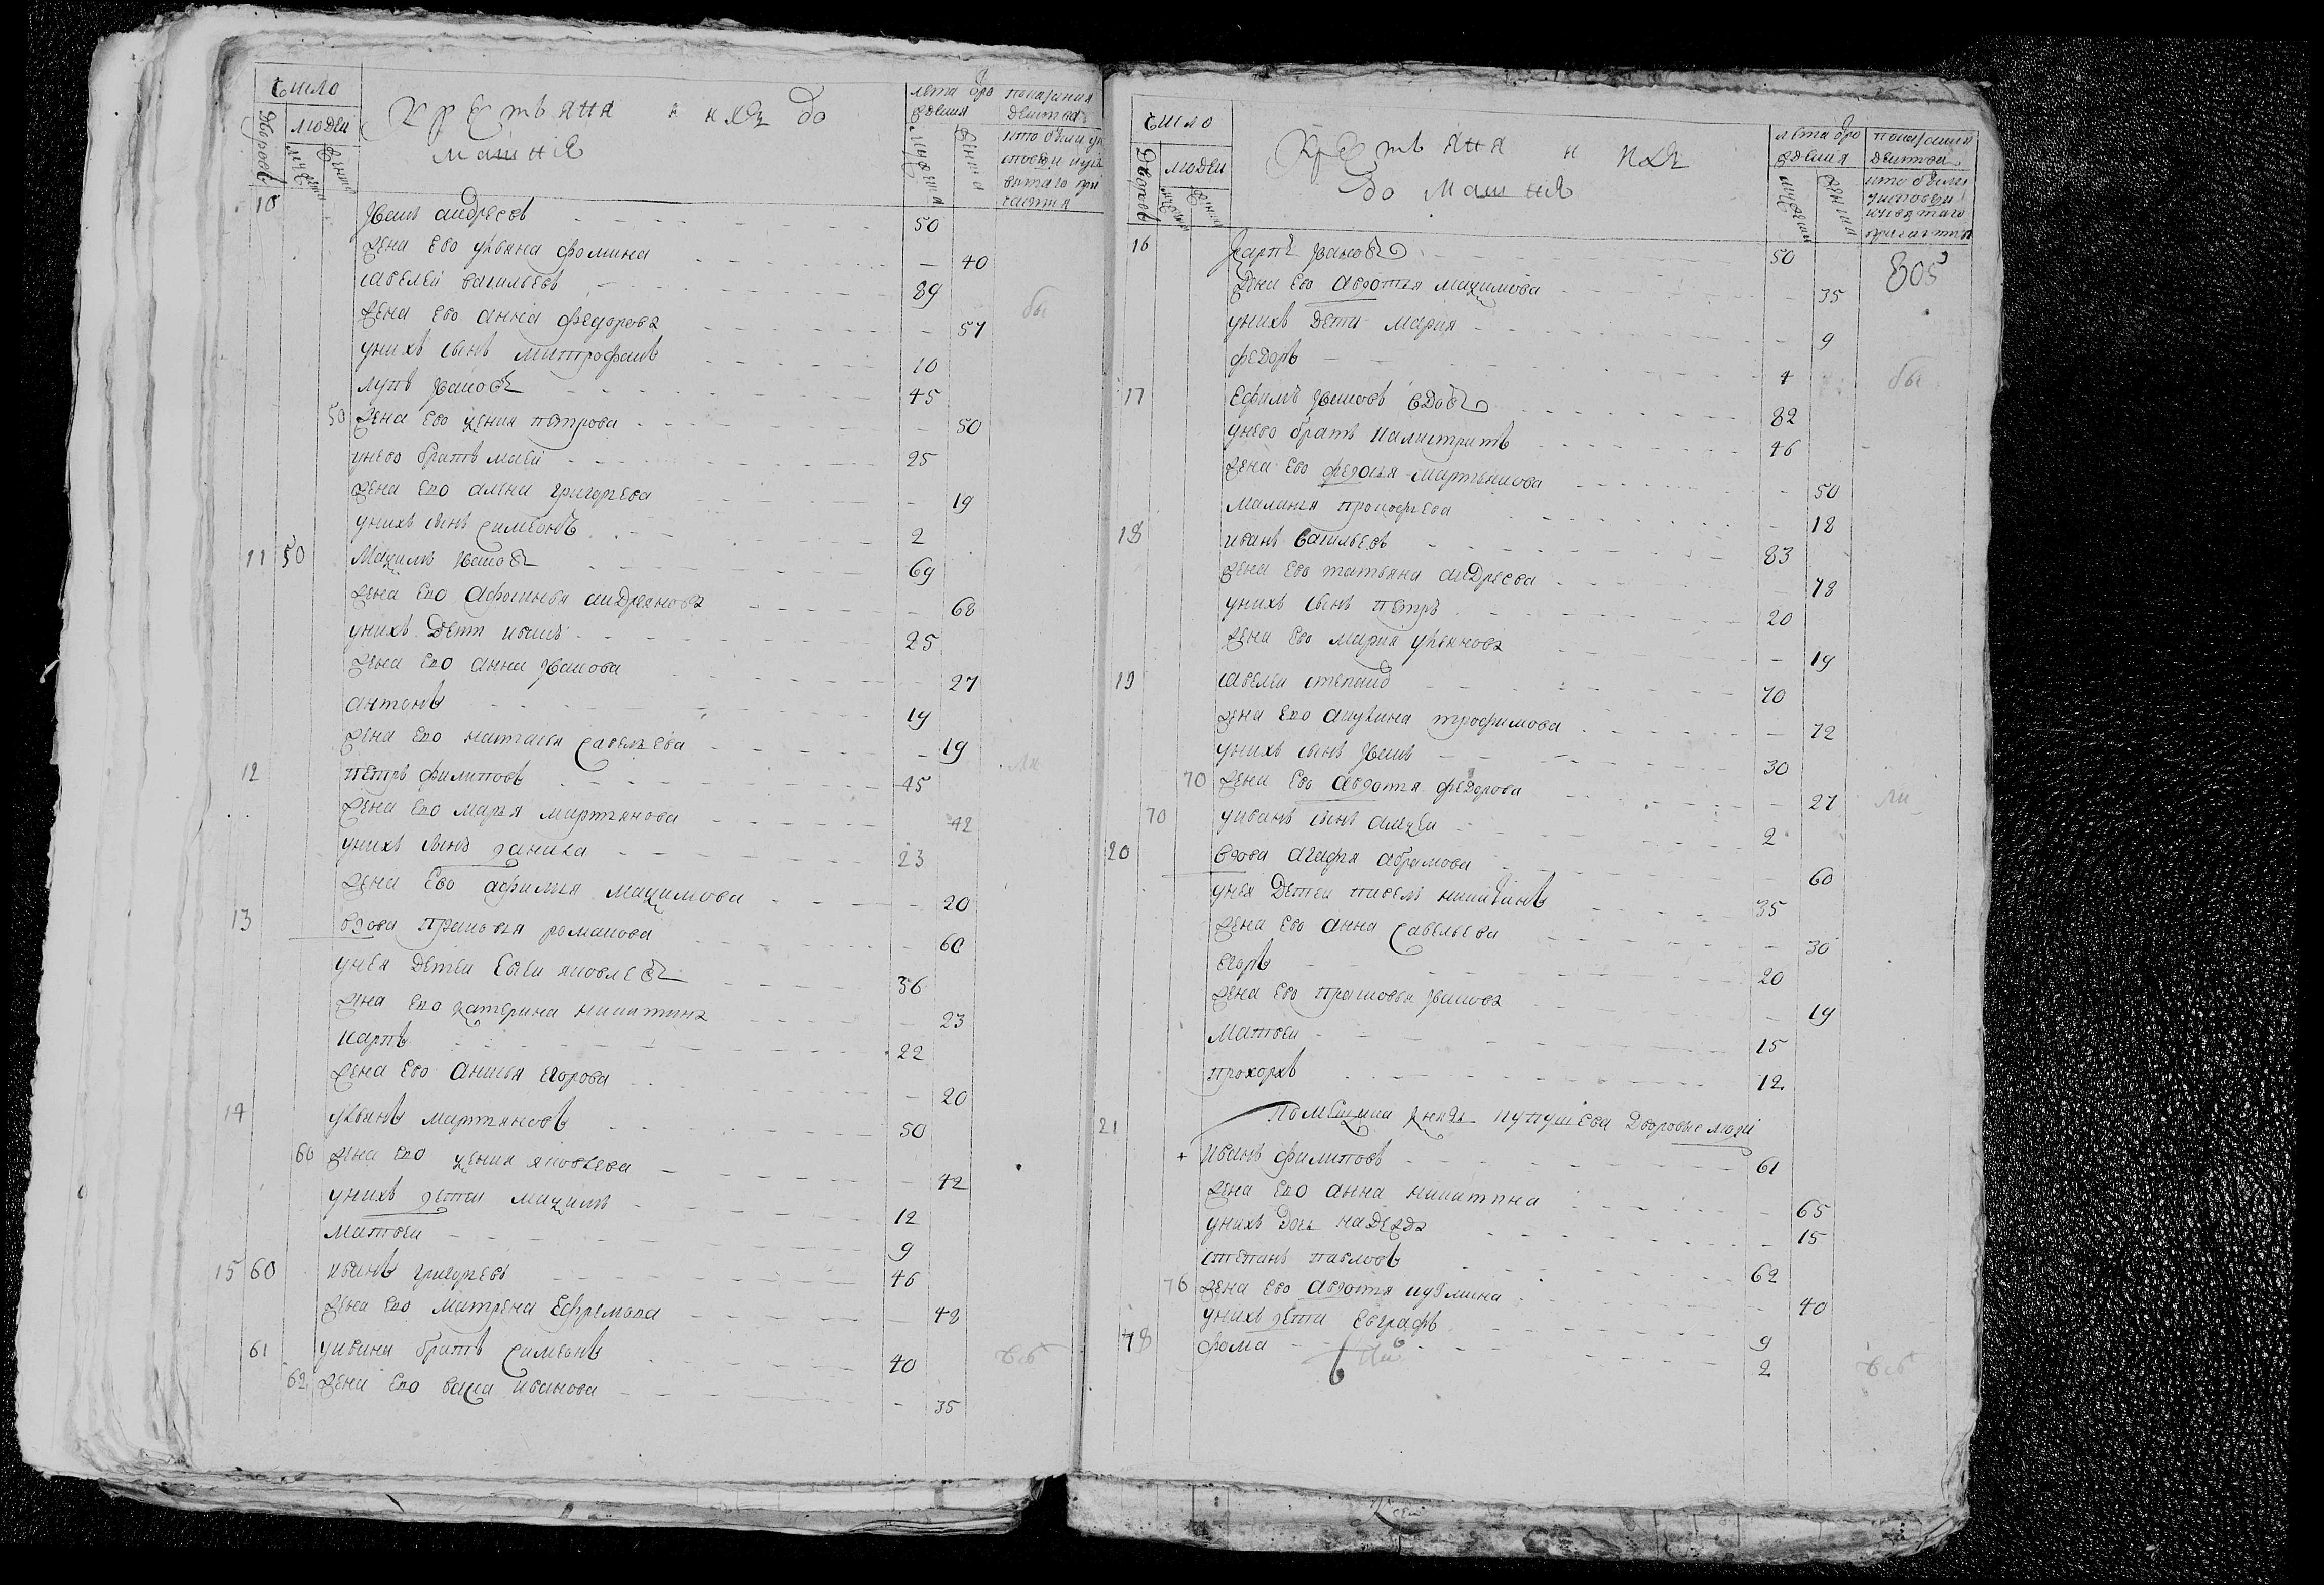 Число
Дворовъ
людей
мужеска
женска
Крестьяня и ихъ до
машнiе
лета оро
ждения
мужеска
женска
показания
действа
кто были у и
споведи и свя
таго при
частия
10 Иванъ андреевъ 50
жена ево ульяна фомина 40
савелей васильевъ 89
жена ево анна федорова 57
бы
унихъ сынъ митрофанъ 10
лупъ Ивановъ 45
50 жена ево ксения петрова 50
унево братъ 25
жена ево алена григорьева 19
унихъ сынъ симеонъ 2
11 50 Максимъ Ивановъ 69
жена ево афросинья андреянова 68
унихъ дети иванъ 25
жена ево анна Иванова 27
антонъ 19
жена ево наталья савельева 19
ли
12 петръ филиповъ 45
жена ево марья мартянова 42
унихъ сынъ данила 23
жена ево афимья максимова 20
13 вдова прасковья романова 60
унея детей евсей яковлевъ 36
жена ево катерина никитина 23
карпъ 22
жена ево анисья егорова 20
14 ульянъ мартяновъ 50
60 жена ево ксения яковлева 42
унихъ дети максимъ 12
матвей 9
15 60 иванъ григорьевъ 46
жена ево матрена ефремова 48
61 уивана братъ симеонъ 40
62 жена ево васса иванова 35
Число
Дворовъ
людей
мужеска
женска
Крестьяня и ихъ
домашнiе
лета оро
ждения
мужеска
женска
показания
действа
кто были
уисповеди
исвятаго
причастия
16 карпъ Ивановъ 50
305
жена ево авдотья максимова 35
унихъ дети мария 9
федоръ 4
бы
17 Ефимъ Ивановъ вдовъ 82
унево братъ калистратъ 46
жена ево федосья мартынова 50
маланья прокофьева 18
18 иванъ васильевъ 83
жена ево татьяна андреева 78
унихъ сынъ петръ 20
жена ево мария ульянова 19
19 савелей степанов 70
жена ево акулина трофимова 72
унихъ сынъ Иванъ 30
70 жена ево авдотья федорова 27
ли
70 уивана сынъ алексей 2
20 вдова агафья абрамова 60
унея детей павелъ никитинъ 35
жена ево анна савельева 30
Егоръ 20
жена ево прасковья Иванова 19
Матвей 15
прохоръ 12
21 помещика князь кутушева дворовые люди
+ иванъ филиповъ 61
жена ево анна никитина 65
унихъ дочь надежда 15
степанъ павловъ 62
76 жена ево авдотья кузмина 40
унихъ дети евграфъ 9
78 фома 2
все